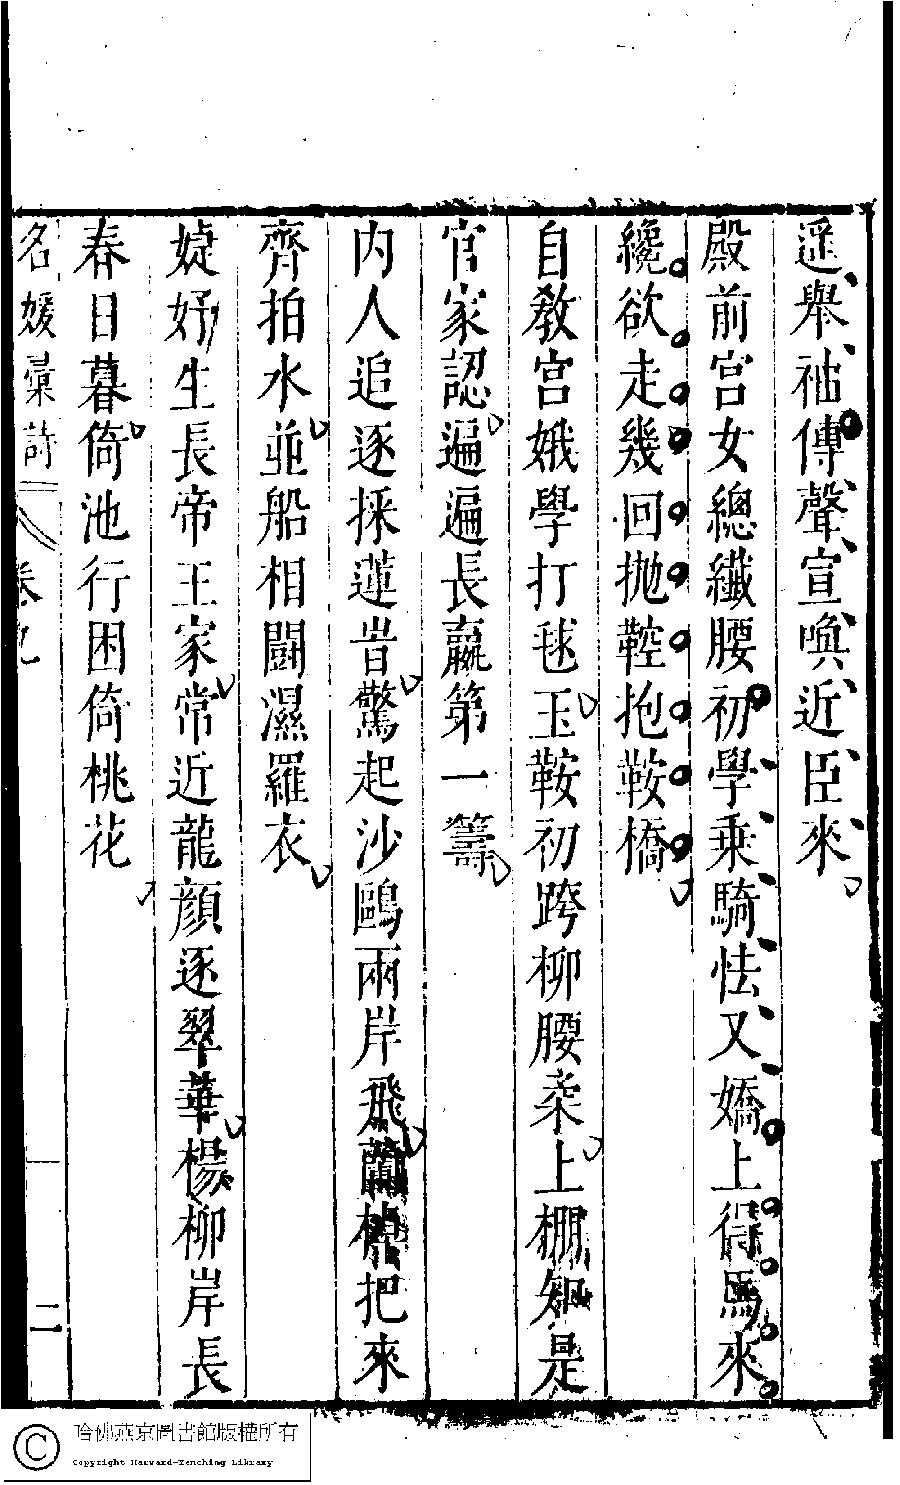 遥舉袖傳聲宣喚近臣來
殿前宮女總纖腰初學乘騎怯又嬌上得馬來
纔欲走幾回拋鞚抱鞍橋
自敎宮娥學打毬玉鞍初跨柳腰柔上棚知是
官家認遍遍長贏第一籌
内人追逐採蓮旹驚起沙鷗兩岸飛蘭棹把來
齊拍水並船相鬪濕羅衣
婕妤生長帝王家常近龍顔逐翠華楊柳岸長
春日暮倚池行困倚桃花
名媛彙詩 卷九 二
哈佛燕京圖書館版權所有
Copyright Harvard-Yenching Library